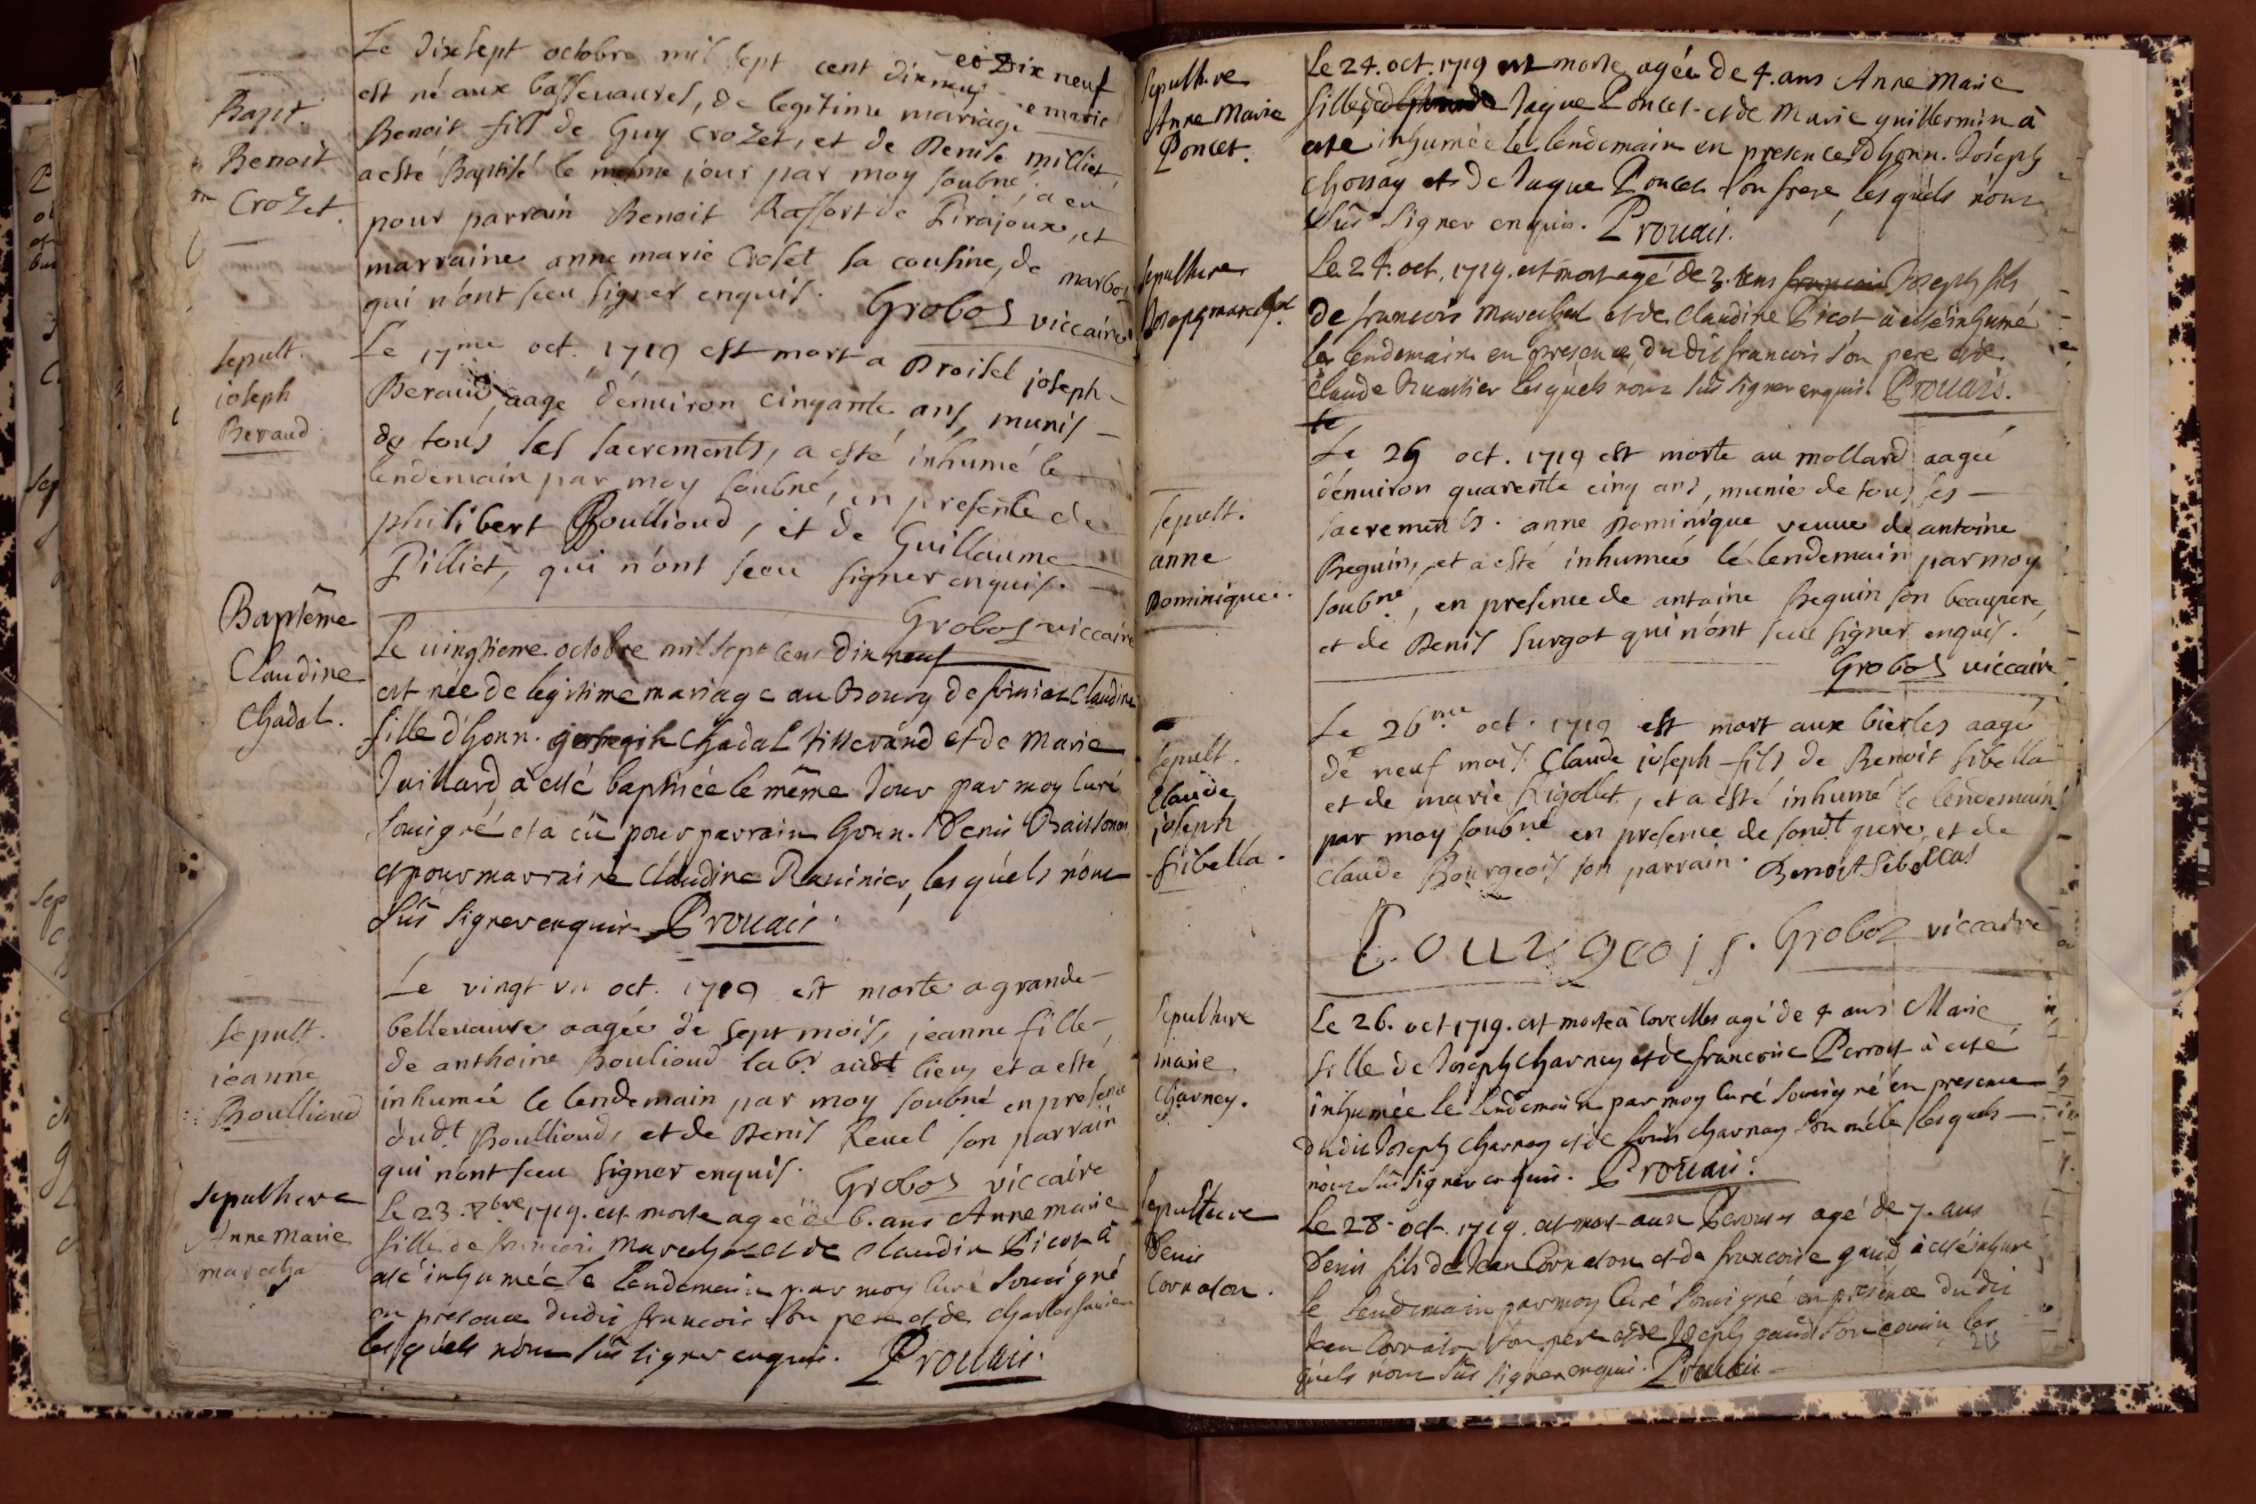 Bapt.
Benoit
Crozet.
Le dixsept octobre mil sept cent dixneuf
et Dix neuf
est né aux bassevaures, de legitime mariage
Benoit fils de Guy Crozet, et de Denise milliet,
a esté Baptisé le mesme jour par moy soubné, a eu
pour parrain Benoit Raffort de Pirajoux, et
marraine anne marie Croset sa cousine, de marboz
qui n'ont sceu signer enquis. Grobos viccaire
Sepult.
joseph
Beraud
Le 17me oct. 1719 est mort a Broisel joseph
Beraud, aagé d'enuiron cinqante ans, munis
de tous les sacrements, a esté inhumé le
lendemain par moy soubné, en presente de
philibert Boullioud, et de Guillaume
Pilliet, qui n'ont sceu signer enquis.
Grobos viccaire
Baptême
Claudine
Chadal.
Le uingtieme octobre mil sept cent Dix neuf
est née de legitime mariage au Bourg de Claudine
fille d'honn. Chadal tisserand et de Marie
Juillard, à esté baptisée le même Jour par moy Curé
Sousigné et a eü pour parrain honn. Denis
et pour marraine Claudine Rauinier, les quels n'ont
sũs signer enquis Prouais.
Sepult.
jeanne
Boullioud
Le vingt vn oct. 1719 est morte a grande
bellevaure aagée de sept mois, jeanne fille
de anthoine Boulioud labr. audt lieu, et a esté
inhumée le lendemain par moy soubné en presence
dudt Boullioud, et de Denis Revel son parrain
qui n'ont sceu signer enquis. Grobos viccaire
Sepulture
Anne Marie
marecha
Le 23. 8bre 1719. est morte agée de 6. ans Anne marie
fille de francois Marechal et de Claudine Picot à
esté inhumée le lendemain par moy Curé Sousigné
en presence dudit francois son pere et de Charles
lesquels n'ont sũs signer enquis. Prouais.
Sepulture
Anne Marie
Poncet.
Le 24. oct. 1719 est morte agée de 4. ans Anne Marie
fille de Jaque Poncet et de Marie guillermin à
esté inhumée le lendemain en presence d'honn. Joseph
Chossay et de Jaque Poncet son frere, les quels n'ont
sũs signer enquis. Prouais.
Sepulture
Joseph marechal
Le 24. oct. 1719. est mort agé de 3. ans francois Joseph fils
de francois Marechal et de Claudine Picot à esté inhumé
le lendemain en presence du dit francois son pere et de
Claude lesquels n'ont sũs signer enquis. Prouais.
Le
Sepult.
anne
Dominique.
Le 25 oct. 1719 est morte au mollard aagée
d'enuiron quarente cinq ans, munie de tous les
sacrements. anne Dominique veuue de antoine
Beguin, et a esté inhumée le lendemain par moy
soubné, en presence de antoine Beguin son beaupere,
et de Denis Surgot qui n'ont sceu signer enquis.
Grobos viccaire
Sepult.
Claude
joseph
Sibella.
Le 26me oct. 1719 est mort aux bierles aagé
de neuf mois Claude joseph fils de Benoit Sibella
et de marie Rigollet, et a esté inhumé le lendemain
par moy soubné en presence de sondt pere, et de
Claude Bourgeois son parrain. Benoit Sebellas
Bourgeois. Grobos viccaire
Sepulture
marie
Charnay.
Le 26. oct 1719. est morte à agé de 4 ans Marie
fille de Joseph Charnay et de francoise Perrot à esté
inhumée le lendemain par moy Curé Sousigné en presence
du dit Joseph Charnay et de Charnay son lesquels
n'ont sũs signer enquis. Prouais.
Sepulture
Denis
Cornaton.
Le 28. oct. 1719. est mort aux agé de 7. ans
Denis fils de Jean Cornaton et de francoise gaud à esté inhumé
le lendemain par moy Curé Sousigné en presence du dit
Jean Cornaton son pere et de Joseph gaud son cousin les
quels n'ont sũs signer enquis. Prouais